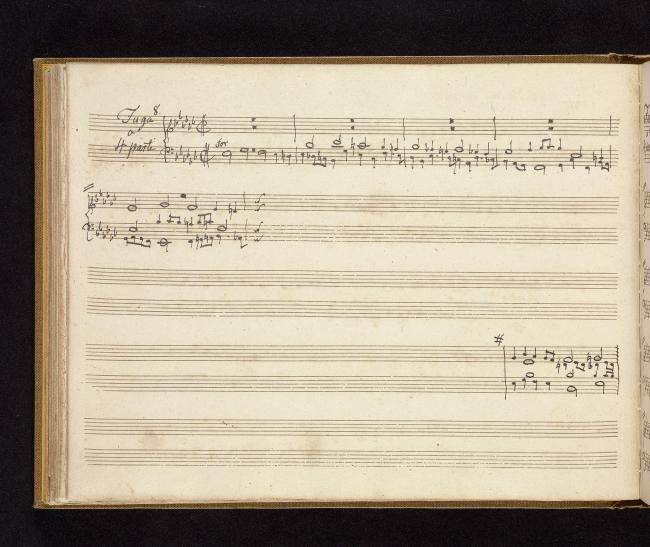 Fuga 8.
a
4 parti
for